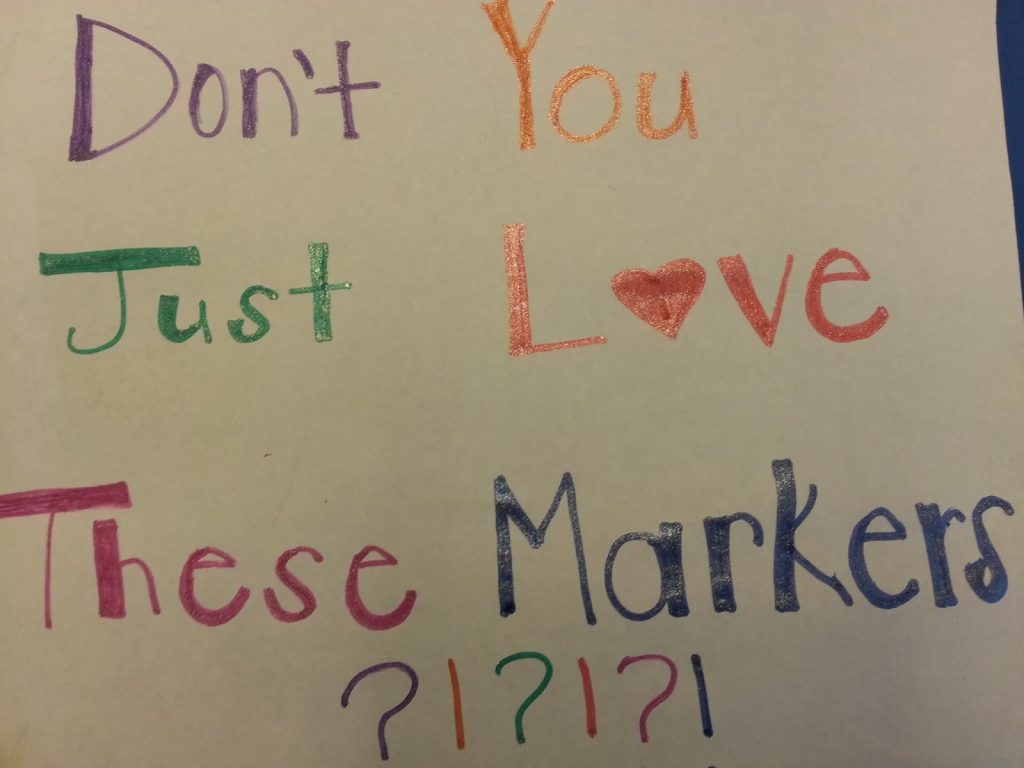 Don't You
Just L♥ve
These Markers
?!?!?!